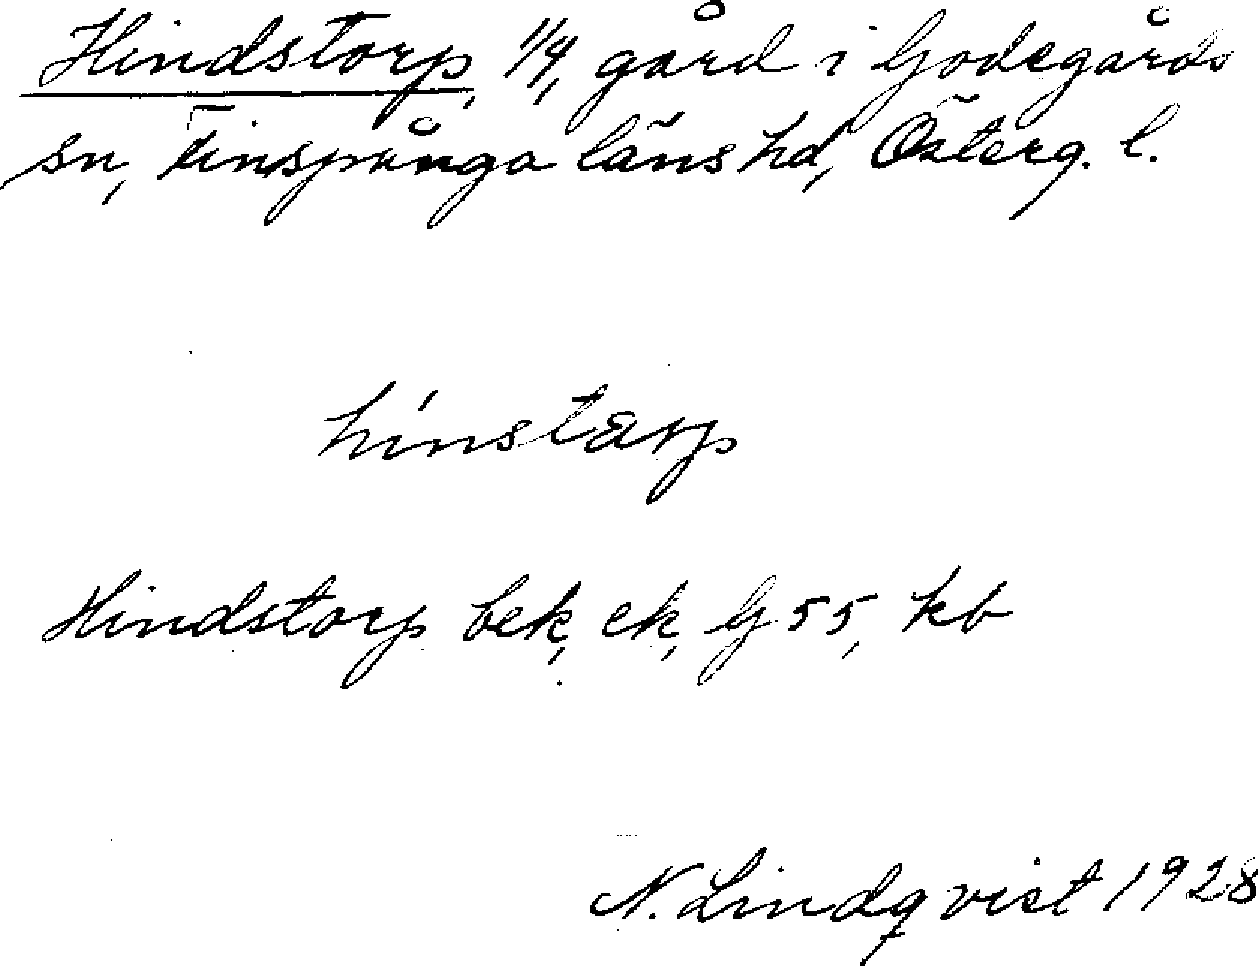 Hindstorp, 1/4, gård i Godegårds
sn, Finspånga läns hd, Österg. l.
hínstarp
Hindstorp bek, ek, G 55, kb
N. Lindqvist 1928